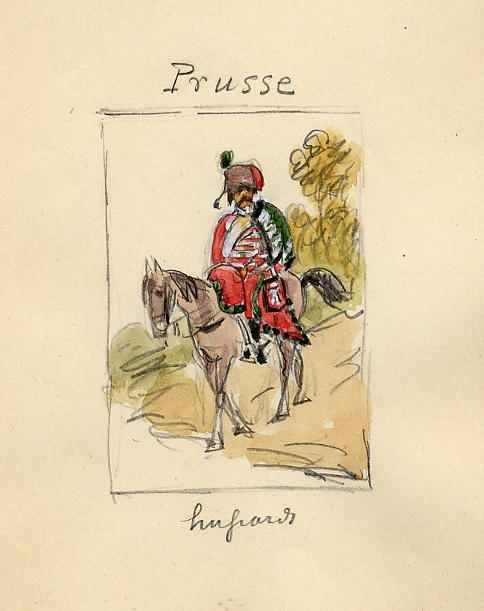 Prusse
hussards